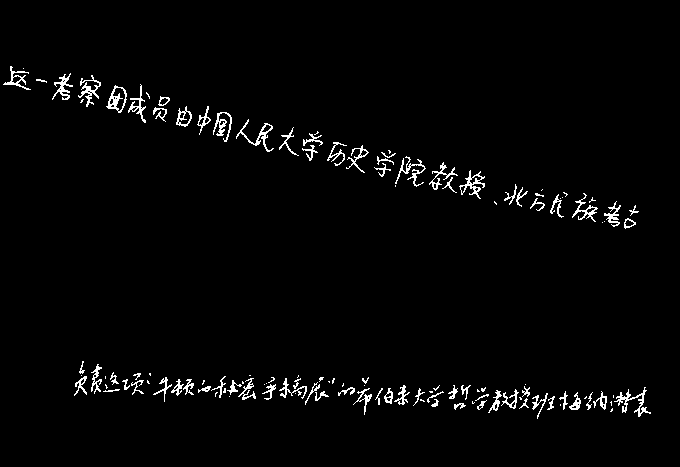 这一考察团成员由中国人民大学历史学院教授、北方民族考古
负责这项“牛顿的秘密手稿展”的希伯来大学哲学教授班梅纳潜表